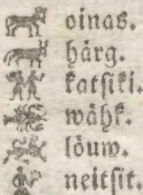 oinas.
härg.
katsiki.
wähk.
löuw.
neitsit.